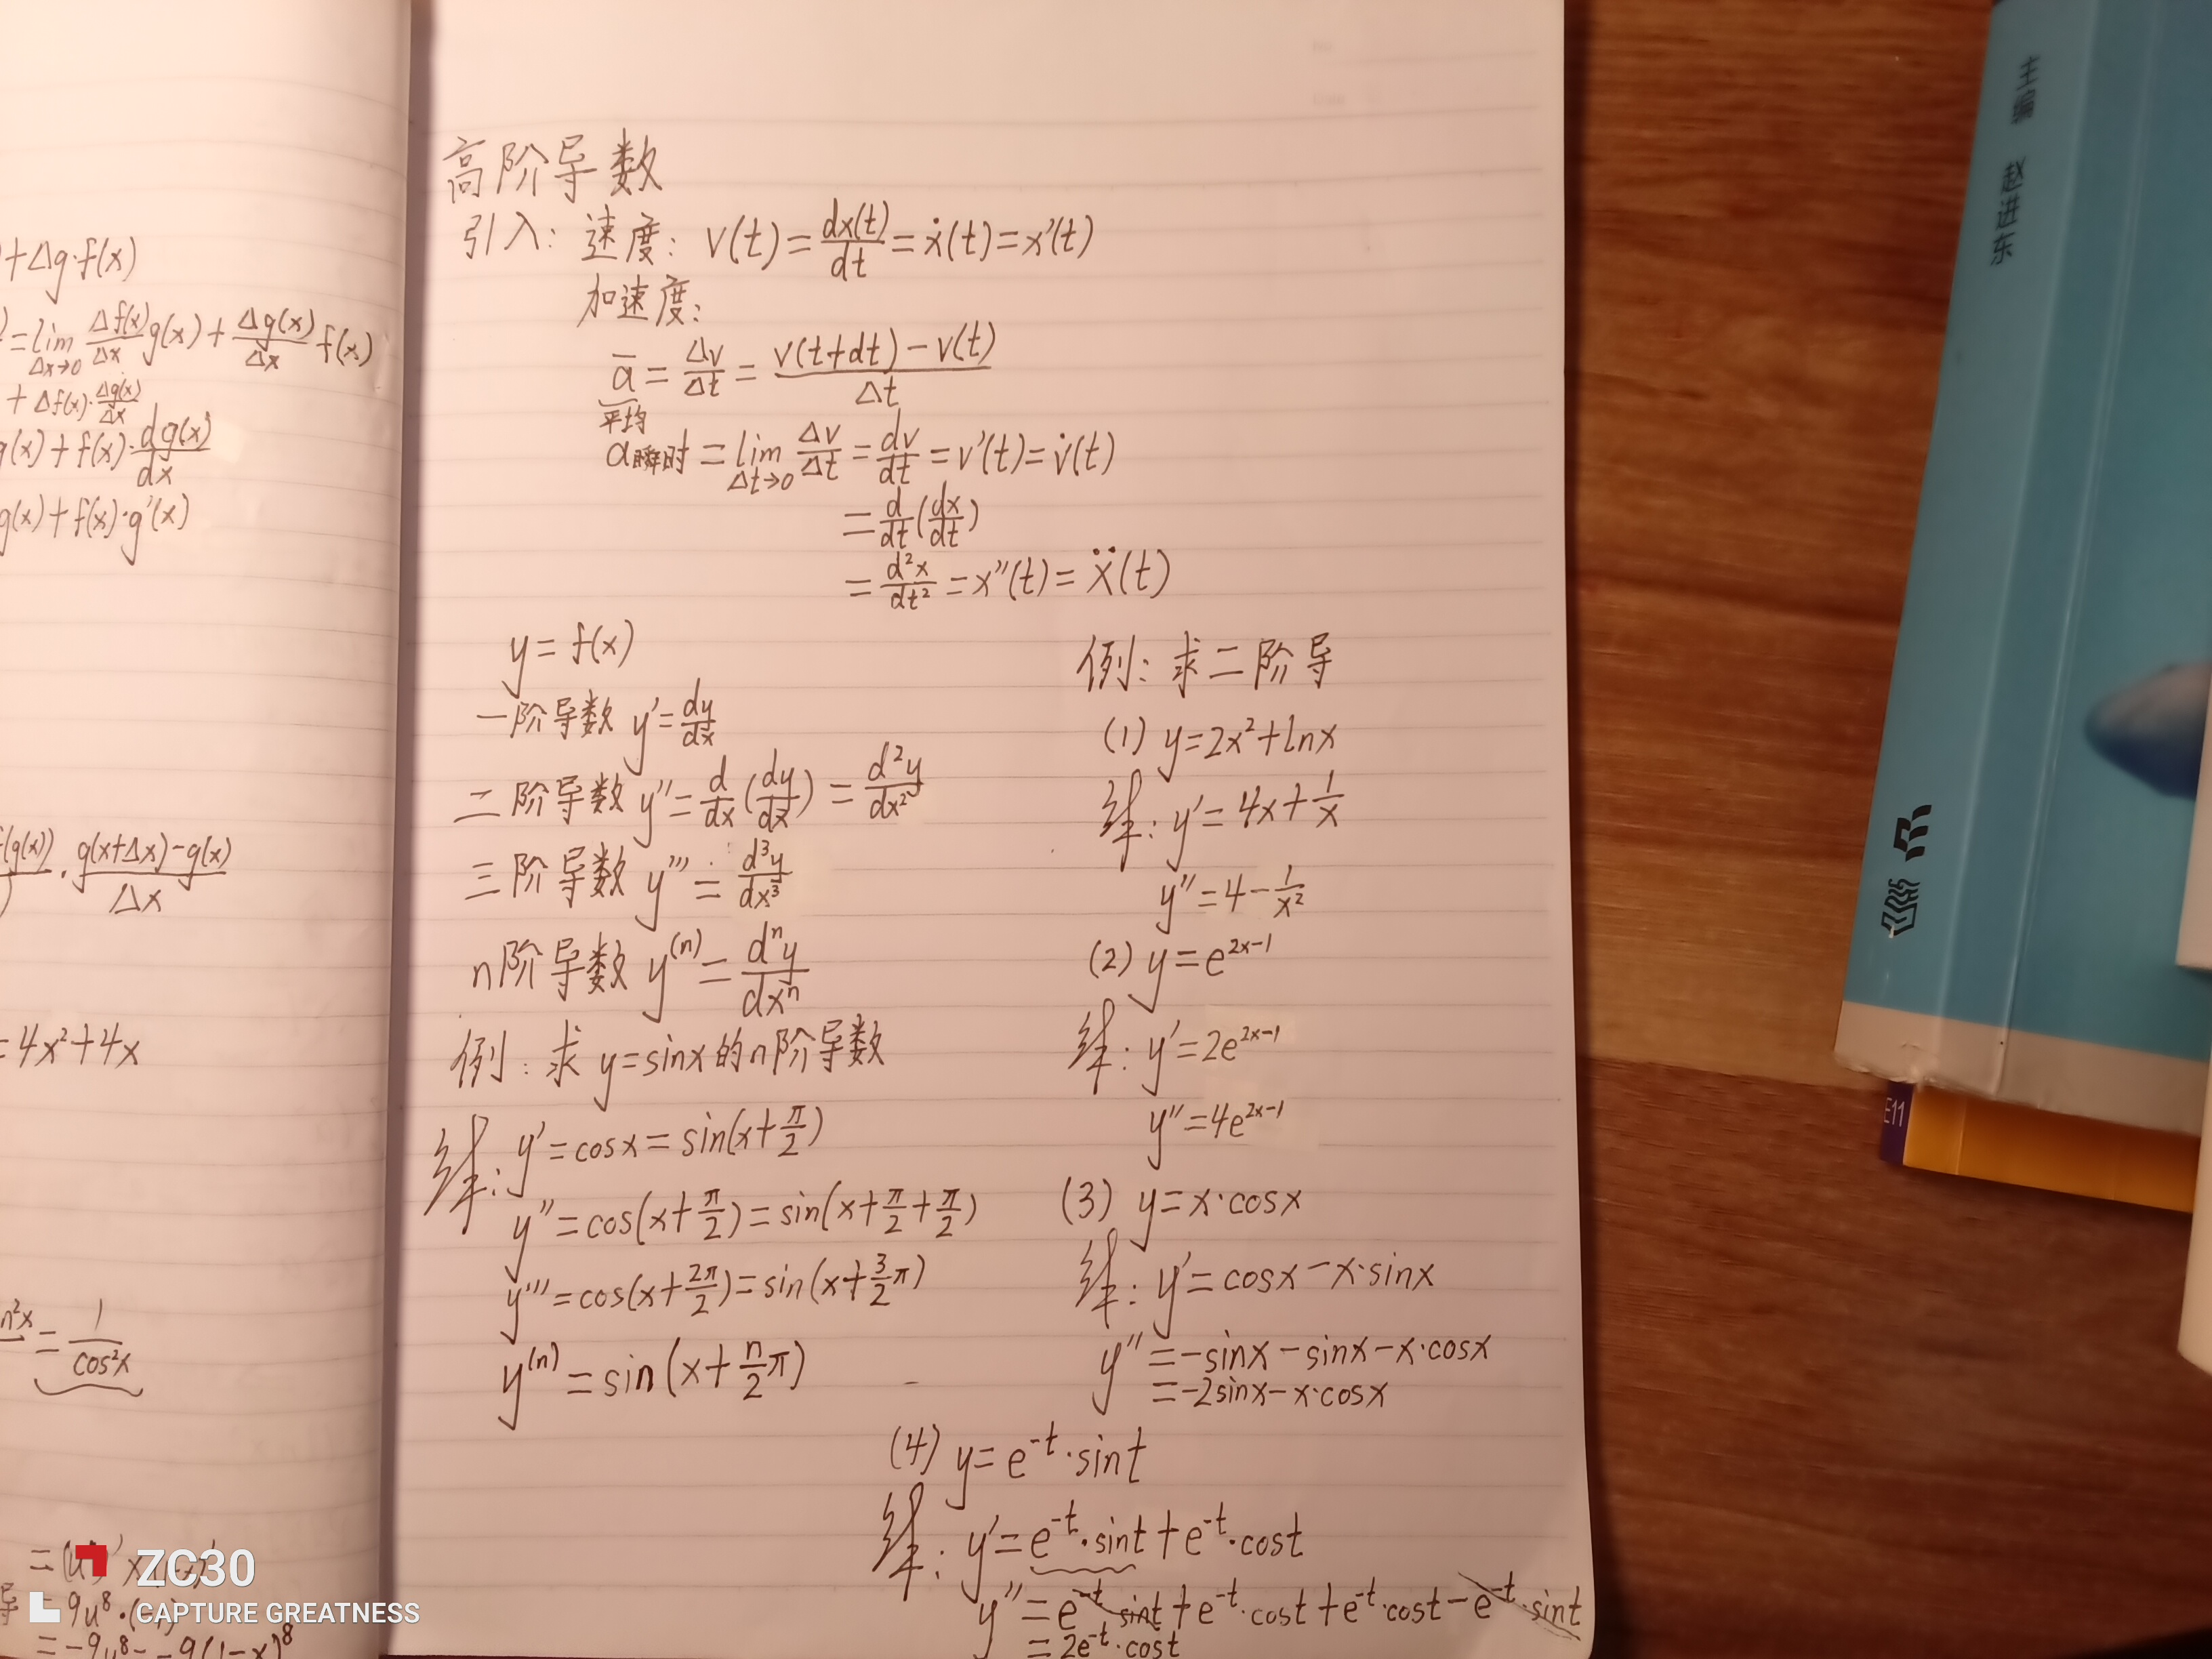 +Δg·f(x)
=lim Δx→0 Δf(x)/Δx g(x)+Δg(x)/Δx f(x)
+Δf(x)·Δg(x)/Δx
g(x)+f(x)·dg(x)/dx
g(x)+f(x)·g'(x)
f(g(x)) · g(x+Δx)-g(x)/Δx
=4x²+4x
n²x = 1/cos²x
=9u⁸·(-1)
=-9u⁸=-9(1-x)⁸
高阶导数
引入: 速度: v(t)=dx(t)/dt=ẋ(t)=x'(t)
加速度:
a̅=Δv/Δt=v(t+dt)-v(t)/Δt
平均
a瞬时=lim Δt→0 Δv/Δt=dv/dt=v'(t)=v̇(t)
=d/dt(dx/dt)
=d²x/dt²=x''(t)=ẍ(t)
y=f(x)
一阶导数 y'=dy/dx
二阶导数 y''=d/dx(dy/dx)=d²y/dx²
三阶导数 y'''=d³y/dx³
n阶导数 y⁽ⁿ⁾=dⁿy/dxⁿ
例: 求 y=sinx的n阶导数
: y'=cosx=sin(x+π/2)
y''=cos(x+π/2)=sin(x+π/2+π/2)
y'''=cos(x+2π/2)=sin(x+3/2π)
y⁽ⁿ⁾=sin(x+n/2π)
例: 求二阶导
(1) y=2x²+lnx
: y'=4x+1/x
y''=4-1/x²
(2) y=e²ˣ⁻¹
: y'=2e²ˣ⁻¹
y''=4e²ˣ⁻¹
(3) y=x·cosx
: y'=cosx-x·sinx
y''=-sinx-sinx-x·cosx
=-2sinx-x·cosx
(4) y=e⁻ᵗ·sint
: y'=e⁻ᵗ·sint+e⁻ᵗ·cost
y''=e⁻ᵗ sint+e⁻ᵗ·cost+e⁻ᵗ·cost-e⁻ᵗ·sint
=2e⁻ᵗ·cost
主编 赵进东
E11
ZC30
CAPTURE GREATNESS